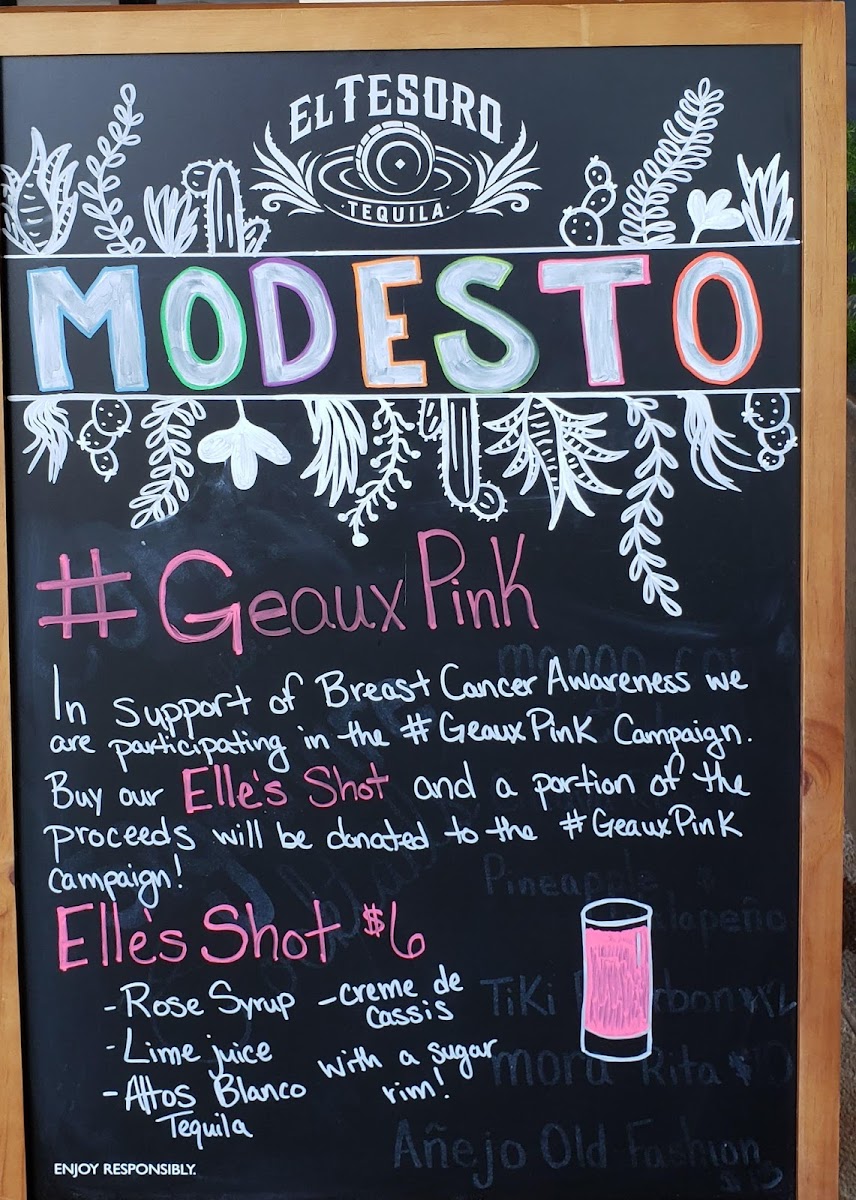 EL TESORO
TEQUILA
MODESTO
#GeauxPink
In support of Breast Cancer Awareness we
are participating in the #GeauxPink Campaign.
Buy our Elle's Shot and a portion of the
proceeds will be donated to the #GeauxPink
campaign!
Elle's Shot $6
- Rose Syrup - creme de cassis
- Lime juice
with a sugar rim!
- Altos Blanco
Tequila
Pineapple
Tiki
Mora Rita
Añejo Old Fashion
ENJOY RESPONSIBLY.